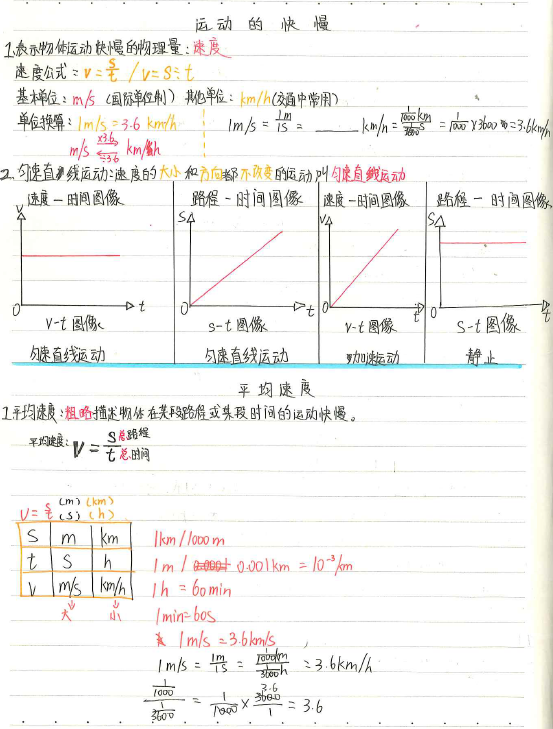 运动的快慢
1.表示物体运动快慢的物理量:速度
速度公式=v=s/t / v=s÷t
基本单位:m/s (国际单位制) 其他单位:km/h(交通中常用)
单位换算:1m/s=3.6 km/h
1m/s = 1m/1s = ______ km/h = 1/1000 km
= 1/1000 ×3600 = 3.6km/h
m/s ×3.6 ÷3.6 km/h
2.匀速直线运动:速度的大小和方向都不改变的运动叫匀速直线运动
速度-时间图像 路程-时间图像 速度-时间图像 路程-时间图像
v S v S
0 t 0 t 0 t 0 t
v-t图像 s-t图像 v-t图像 s-t图像
匀速直线运动 匀速直线运动 加速运动 静止
平均速度
1.平均速度:粗略描述物体在某段路程或某段时间的运动快慢。
平均速度: v = s总路程/t总时间
v = s/t (m) (km) (s) (h)
S m km
t s h
v m/s km/h
大 小
1km/1000m
1m/ 0.001km = 10⁻³/km
1h = 60min
1min=60s
1m/s = 3.6km/s
1m/s = 1m/1s = 1/1000km / 1/3600h = 3.6km/h
1/1000 / 1/3600 = 1/1000 × 3600/1 = 3.6
3.6